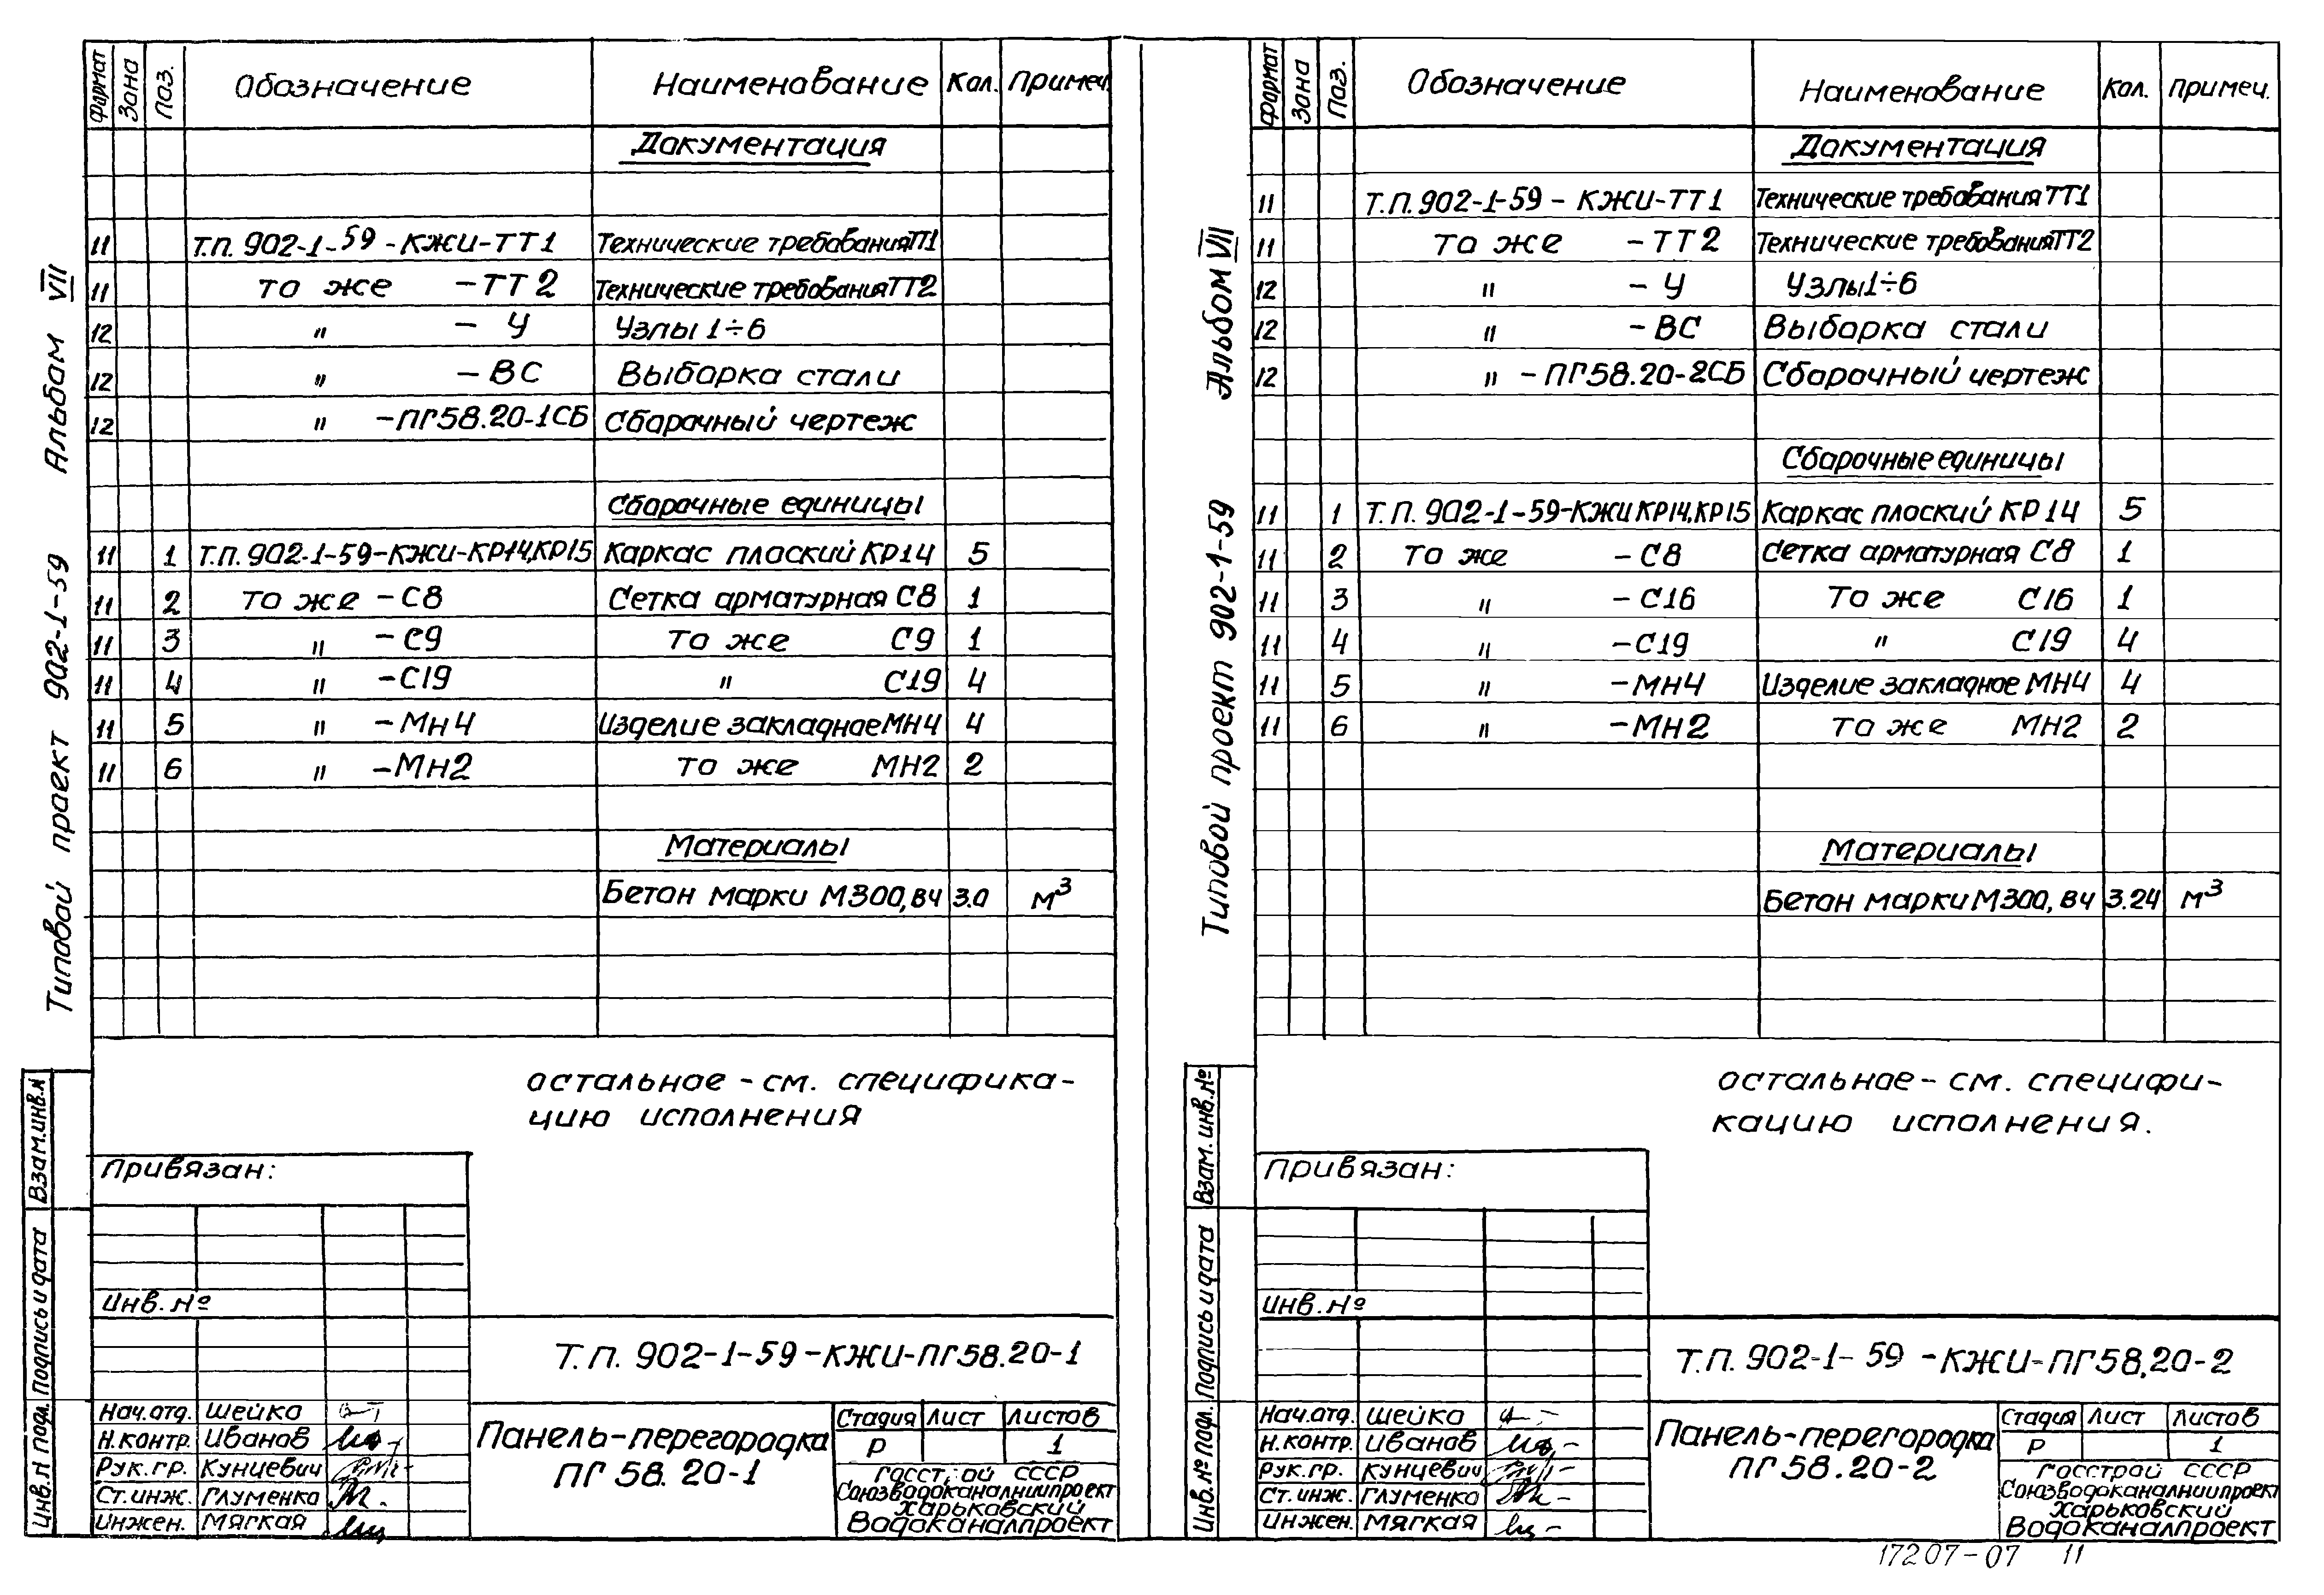 Формат Зона Поз. Обозначение Наименование Кол. Примеч.
Документация
11 Т.П. 902-1-59-КЖИ-ТТ1 Технические требования ТТ1
11 то же -ТТ2 Технические требования ТТ2
12 " - У Узлы 1÷6
12 " -ВС Выборка стали
12 " -ПГ58.20-1СБ Сборочный чертеж
Сборочные единицы
11 1 Т.П. 902-1-59-КЖИ-КР14,КР15 Каркас плоский КР14 5
11 2 то же -С8 Сетка арматурная С8 1
11 3 " -С9 то же С9 1
11 4 " -С19 " С19 4
11 5 " -МН4 Изделие закладное МН4 4
11 6 " -МН2 то же МН2 2
Материалы
Бетон марки М300, В4 3.0 м³
остальное - см. специфика-
цию исполнения
Привязан:
Инв. №
Т.П. 902-1-59-КЖИ-ПГ58.20-1
Нач.отд. Шейко
Н.контр. Иванов
Рук.гр. Кунцевич
Ст.инж. Глуменко
Инжен. Мягкая
Панель-перегородка
ПГ 58.20-1
Стадия Лист Листов
Р 1
Госстрой СССР
Союзводоканалниипроект
Харьковский
Водоканалпроект
Типовой проект 902-1-59 Альбом VII
Инв.№ подл. Подпись и дата Взам.инв.№
Формат Зона Поз. Обозначение Наименование Кол. Примеч.
Документация
11 Т.П. 902-1-59-КЖИ-ТТ1 Технические требования ТТ1
11 то же -ТТ2 Технические требования ТТ2
12 " - У Узлы 1÷6
12 " -ВС Выборка стали
12 " -ПГ58.20-2СБ Сборочный чертеж
Сборочные единицы
11 1 Т.П. 902-1-59-КЖИ КР14,КР15 Каркас плоский КР14 5
11 2 то же -С8 Сетка арматурная С8 1
11 3 " -С16 то же С16 1
11 4 " -С19 " С19 4
11 5 " -МН4 Изделие закладное МН4 4
11 6 " -МН2 то же МН2 2
Материалы
Бетон марки М300, В4 3.24 м³
остальное - см. специфи-
кацию исполнения.
Привязан:
Инв. №
Т.П. 902-1-59-КЖИ-ПГ58.20-2
Нач.отд. Шейко
Н.контр. Иванов
Рук.гр. Кунцевич
Ст.инж. Глуменко
Инжен. Мягкая
Панель-перегородка
ПГ58.20-2
Стадия Лист Листов
Р 1
Госстрой СССР
Союзводоканалниипроект
Харьковский
Водоканалпроект
Типовой проект 902-1-59 Альбом VII
Инв.№ подл. Подпись и дата Взам.инв.№
17207-07 11